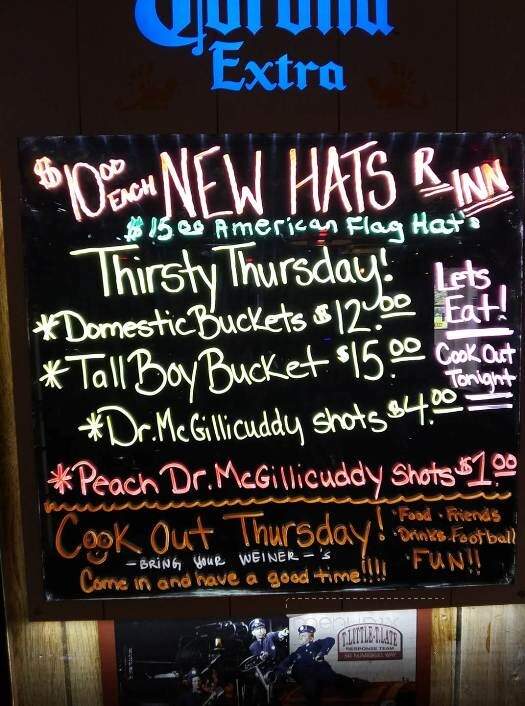 Corona
Extra
$10.00 EACH NEW HATS R INN
$15.00 American Flag Hats
Thirsty Thursday!
*Domestic Buckets $12.00
*Tall Boy Bucket $15.00
*Dr. McGillicuddy shots $4.00
Lets
Eat!
Cook Out
Tonight
*Peach Dr. McGillicuddy Shots $1.00
Cook Out Thursday!
- BRING YOUR WEINER - 's
Come in and have a good time!!!!
· Food · Friends
· Drinks · Football
· FUN!!
T.LITTLE-T.LATE
RESPONSE TEAM